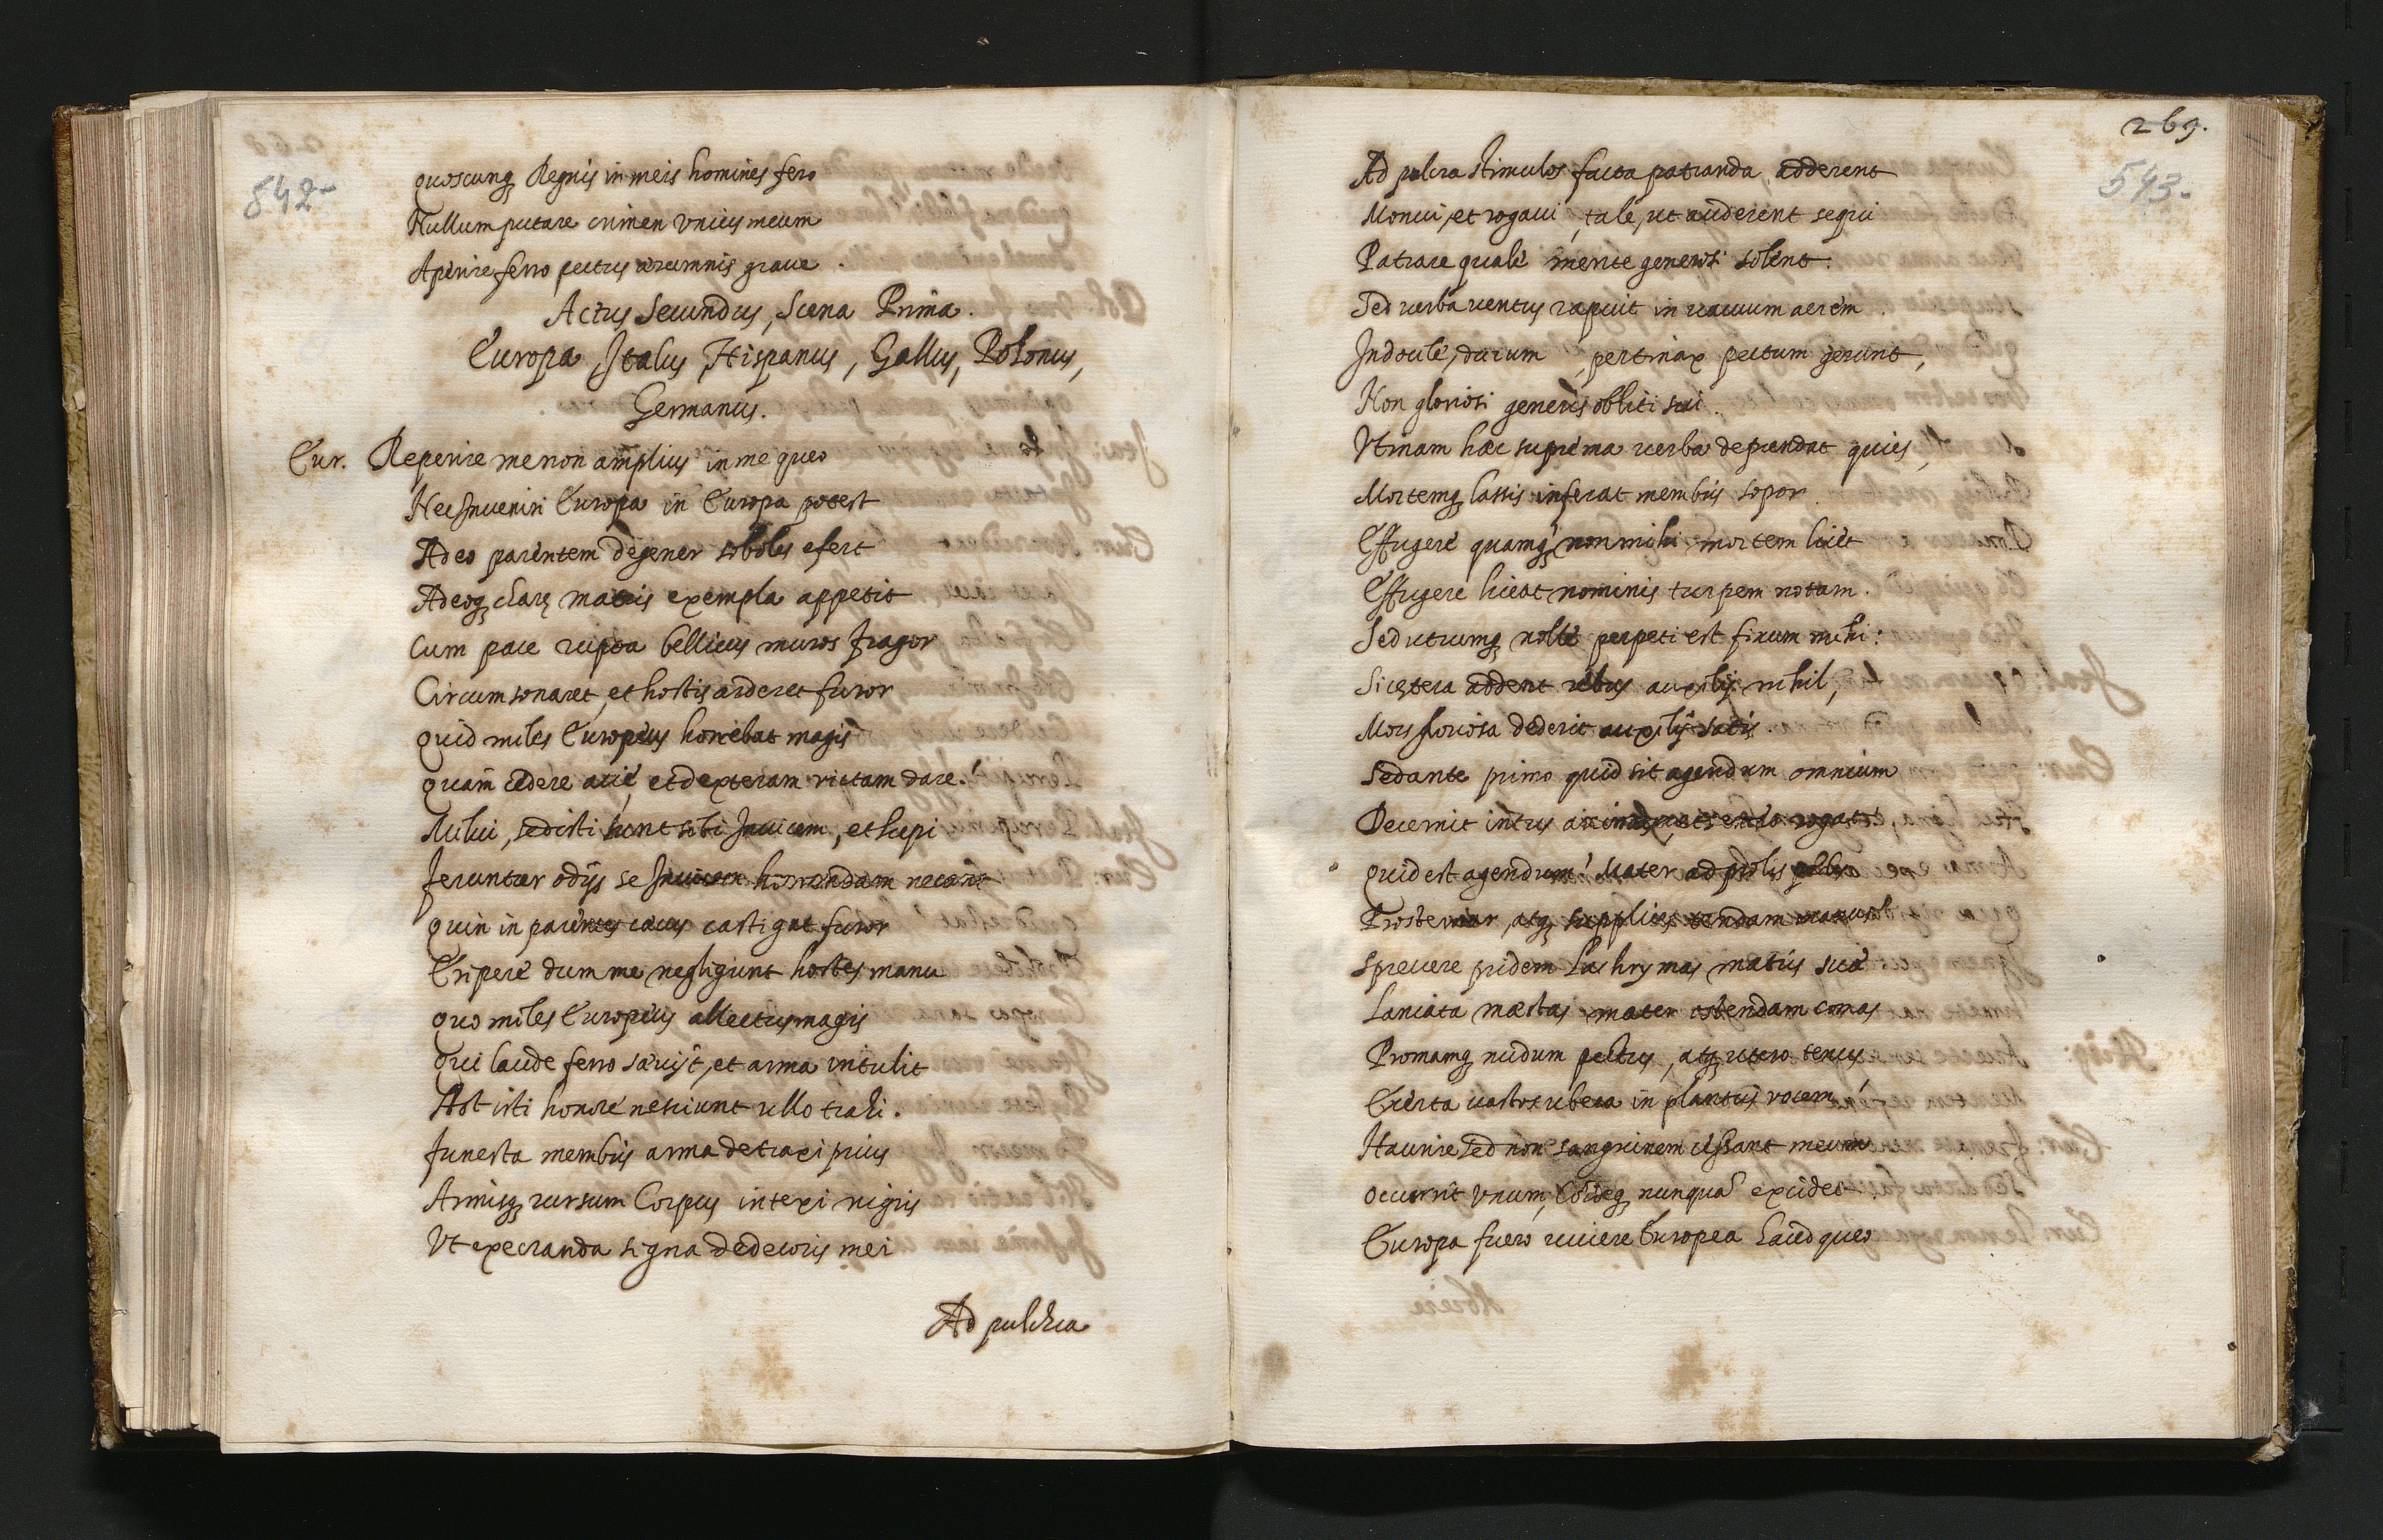 542-
quoscunq; Regnis in meis homines fero
Nullum putare crimen vnius meum
Aperire ferro pectus ærumnis graue.
Actus Secundus, Scena Prima.
Europa Italus Hispanus, Gallus, Polonus,
Germanus.
Eur. Reperire me non amplius in me queo
Nec Inueniri Europa in Europa potest
Adeo parentem degener soboles efert
Adeoq; claræ matris exempla appetit
Cum pace rupta bellicus muros fragor
Circum sonaret, et hostis arderet furor
quid miles Europeus horrebat magis
quam cedere acie, et dexteram victam dare!
Milui, sed isti sunt sibi Inuicem, et lupi
feruntur odijs se Inuicem horrendum necant
quin in parentes cæcus castigat furor
Eripere dum me negligunt hostes manu
quo miles Europeus allectus magis
qui laude ferro sæuijt, et arma intulit
Ast isti honore nesciunt ullo trahi.
funesta membris arma detraxi prius
Armisq; rursum Corpus intexi nigris
Vt execranda signa dedecoris mei
Ad pulchra
269.
543.
Ad pulcra stimulos facta patranda adderent
Monui, et rogaui, tale, ut auderent sequi
Patrare quale mente generosi solent.
Sed verba uentus rapuit in uacuum aerem.
Indocile, durum, pertinax pectum gerunt,
Non gloriosi generis obliti sui.
Vtinam hæc suprema verba deprendat quies,
Mortemq; lassis inferat membris sopor.
Effugere quamq; non mihi mortem licet
Effugere liceat nominis turpem notam.
Sed utrumq; nolle perpeti est fixum mihi:
Si cętera addent rebus auxilij nihil,
Mors gloriosa dederit auxilij satis.
Sed ante primo quid sit agendum omnium
Decernit intus rogat.
quid est agendum! Mater ad prolis pedes
Prosternar, atq; supplices tendam manus!
spreuere pridem lachrymas matris suæ
Laniata mæstas mater ostendam comas
Promamq; nudum pectus, atq; utero tenus
Exerta uastos ubera in planctus vocem!
Haurire sed non sanguinem cessant meum
occurrit vnum, Cordeq; nunqua excidet
Europa fuero uiuere Europea haud queo